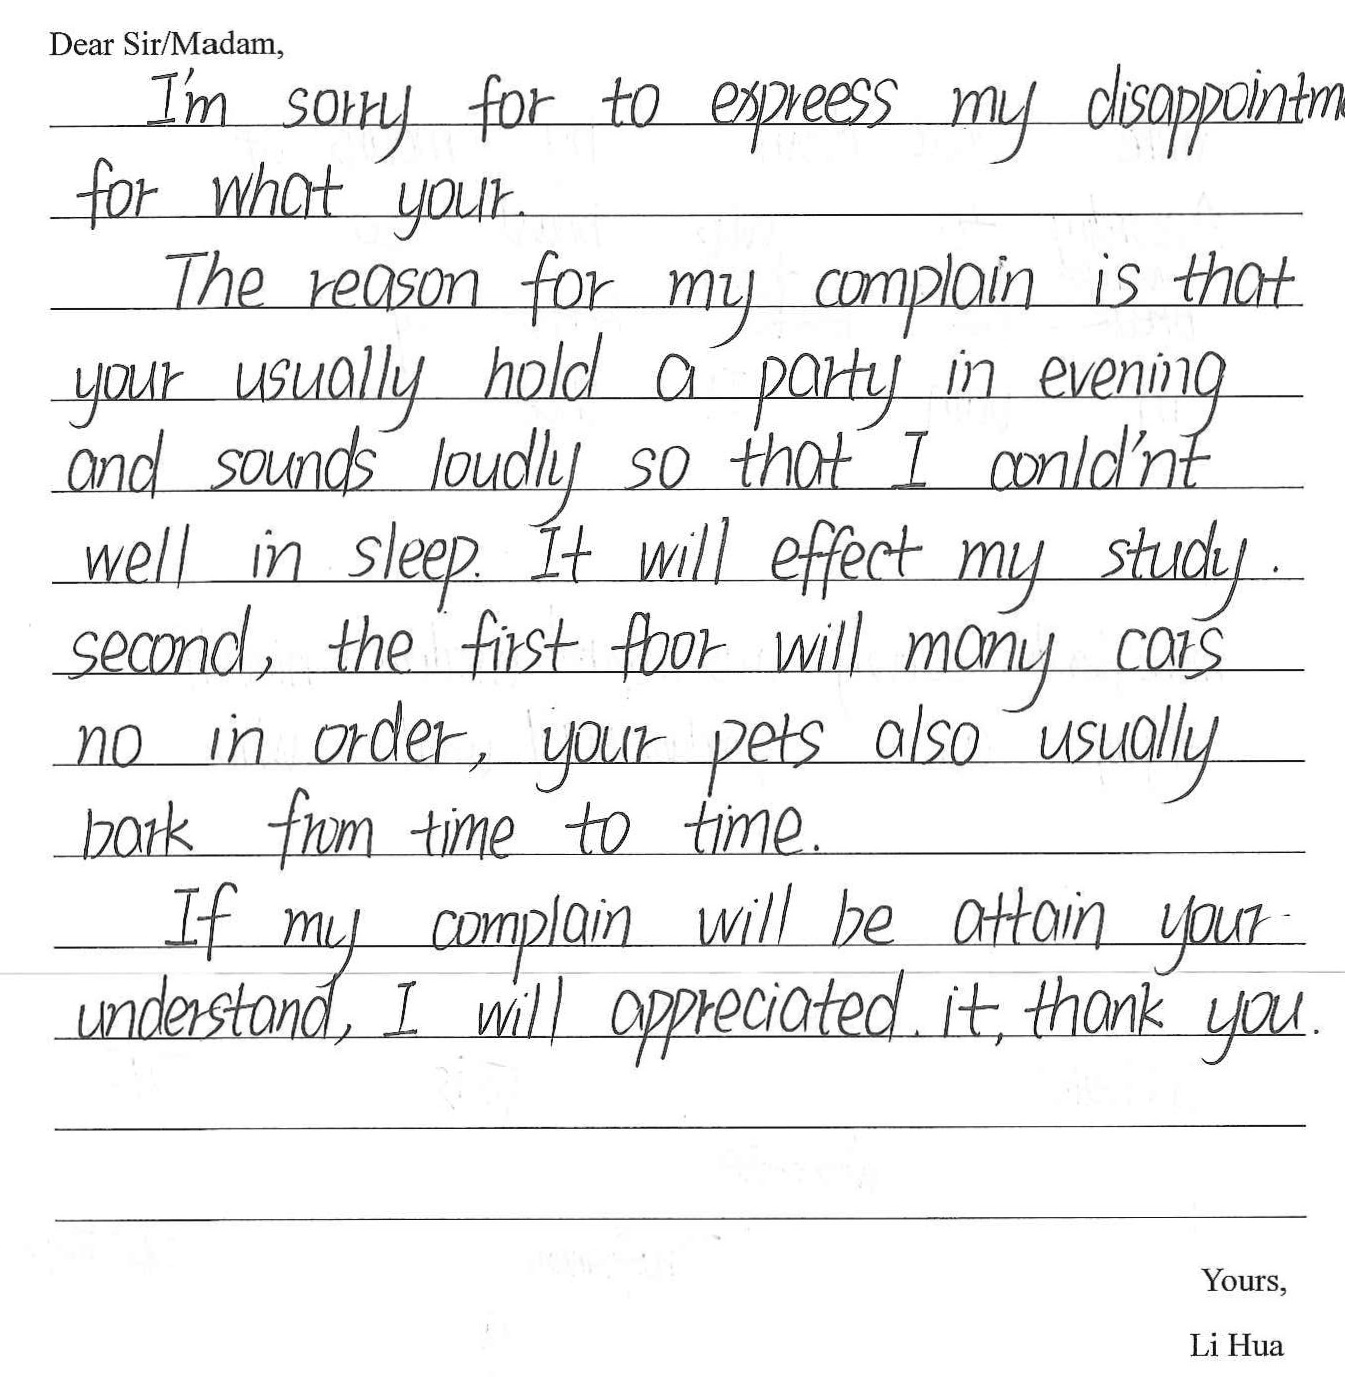 Dear Sir/Madam,
I'm sorry for to expreess my disappointm
for what your.
The reason for my complain is that
your usually hold a party in evening
and sounds loudly so that I conld'nt
well in sleep. It will effect my study.
second, the first floor will many cars
no in order, your pets also usually
bark from time to time.
If my complain will be attain your
understand, I will appreciated. it, thank you.
Yours,
Li Hua